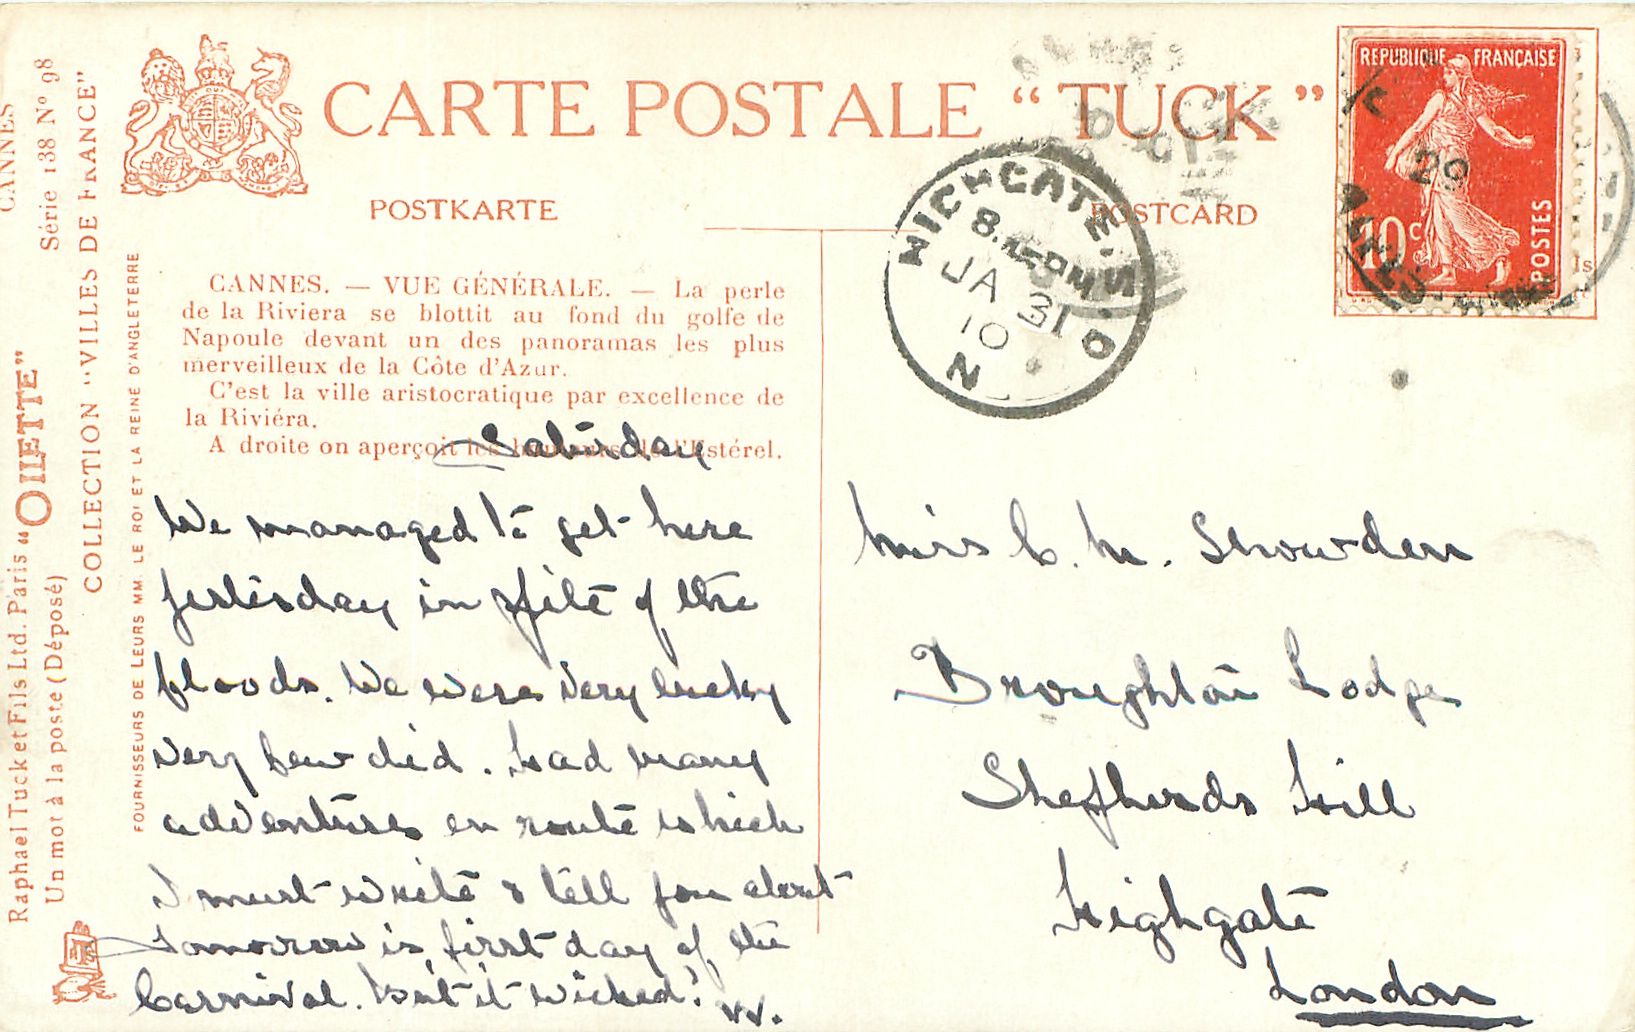 CARTE POSTALE “TUCK”
POSTKARTE
POSTCARD
CANNES
Série 138 Nº 98
COLLECTION “VILLES DE FRANCE”
Raphael Tuck et Fils Ltd. Paris “OILETTE”
Un mot à la poste (Déposé)
FOURNISSEURS DE LEURS MM. LE ROI ET LA REINE D'ANGLETERRE
CANNES. — VUE GÉNÉRALE. — La perle
de la Riviera se blottit au fond du golfe de
Napoule devant un des panoramas les plus
merveilleux de la Côte d'Azur.
C'est la ville aristocratique par excellence de
la Riviéra.
A droite on aperçoit les hauteurs de l'Estérel.
Saturday
We managed to get here
yesterday in spite of the
floods. We were very lucky
very few did. Had many
adventures en route which
I must write & tell you about
Tomorrow is first day of the
Carnival. Isn't it wicked!
VV.
REPUBLIQUE FRANÇAISE
10c
POSTES
29
HIGHGATE.
8.
JA 31
10
N
Miss C. M. Snowden
Broughton Lodge
Shepherds Hill
Highgate
London